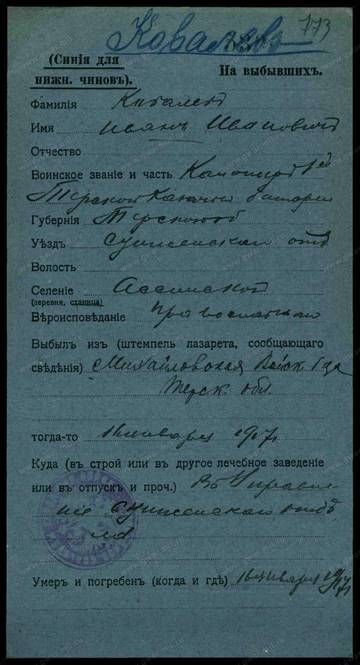 Ковалевъ 173
(Синія для
нижн. чиновъ).
На выбывшихъ.
Фамилія Ковалевъ
Имя Иванъ Ивановичъ
Отчество
Воинское званіе и часть Канониръ
Терской Казачьи батареи
Губернія Терской
Уѣздъ Сунженскаго отд
Волость
Селеніе Ассинской
(деревня, станица)
Вѣроисповѣданіе православнаго
Выбылъ изъ (штемпель лазарета, сообщающаго
свѣдѣнія) Михайловская Войск
Терск. обл.
тогда-то 16 января 1917 г.
Куда (въ строй или въ другое лечебное заведеніе
или въ отпускъ и проч.) Въ Управле
ніе Сунженскаго отдѣ
ла
Умеръ и погребенъ (когда и гдѣ) 16 января 1917 г.